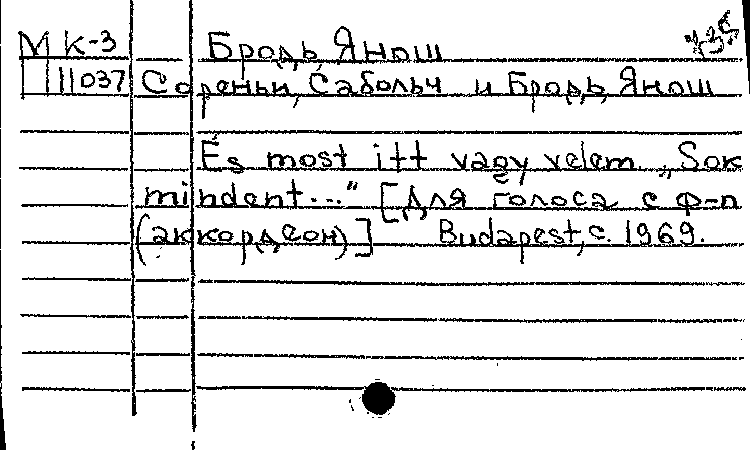 МК-3 Бродь, Янош
11037 Сореньи, Сабольч и Бродь, Янош
És most itt vagy velem. „Sok
mindent..." [Для голоса с ф-п
(аккордеон)] Budapest, c. 1969.